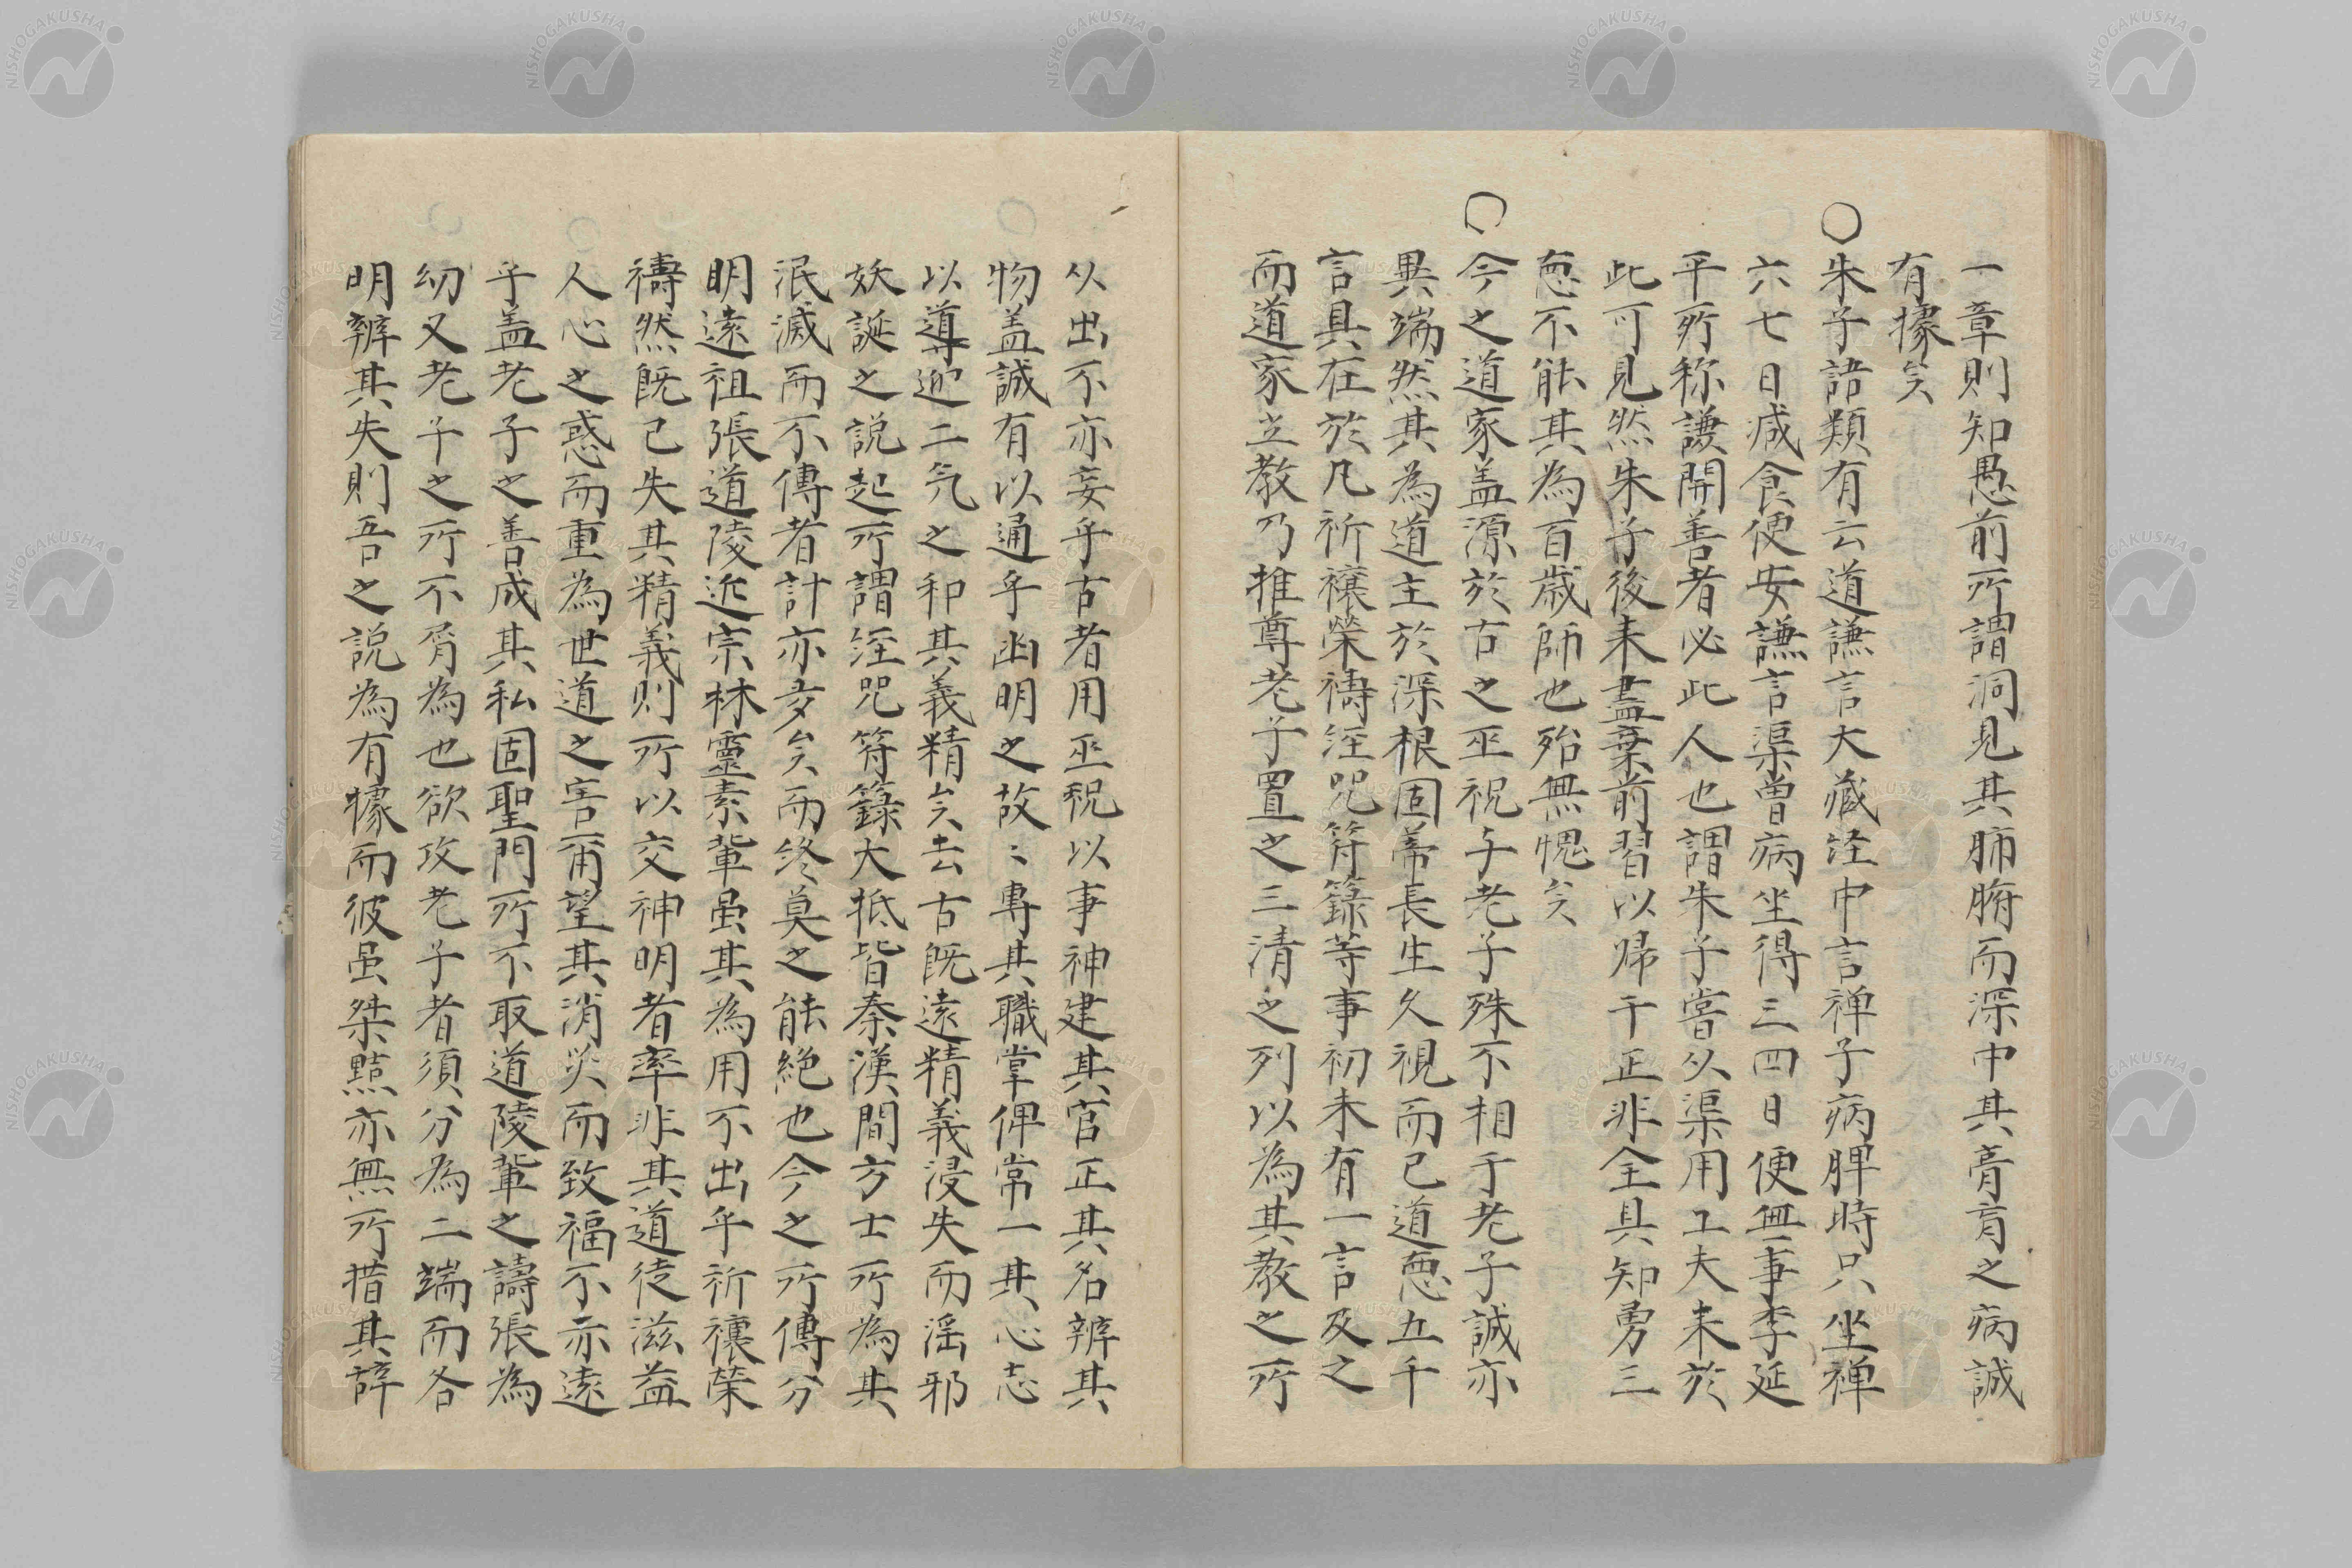 一章則知愚前所謂洞見其肺腑而深中其膏肓之病誠
有據矣
○朱子語類有云道謙言大藏経中言禅子病脾時只坐禅
六七日减食便安謙言渠曽病坐得三四日便無事李延
平所称謙開善者必此人也謂朱子嘗从渠用工夫来於
此可見然朱子後来盡棄前習以帰于正非全具知勇三
悳不能其為百歳師也殆無愧矣
○今之道家盖源於古之巫祝与老子殊不相干老子誠亦
異端然其為道主於深根固蒂長生久視而已道悳五千
言具在於凡祈禳禜禱経咒符籙等事初未有一言及之
而道家立教乃推尊老子置之三清之列以為其教之所
从出不亦妄乎古者用巫祝以事神建其官正其名辨其
物盖誠有以通乎幽明之故〻專其職掌俾常一其心志
以導迎二気之和其義精矣去古既遠精義浸失而淫邪
妖誕之説起所謂経咒符籙大抵皆秦漢間方士所為其
泯滅而不傳者計亦多矣而終莫之能絶也今之所傳分
明遠祖張道陵近宗林靈素輩虽其為用不出乎祈禳禜
禱然既已失其精義則所以交神明者率非其道徒滋益
人心之惑而重為世道之害爾望其消灾而致福不亦遠
乎盖老子之善成其私固聖門所不取道陵輩之譸張為
幻又老子之所不屑為也欲攻老子者須分為二端而各
明辨其失則吾之説為有據而彼虽桀黠亦無所措其辞
NISHOGAKUSHA